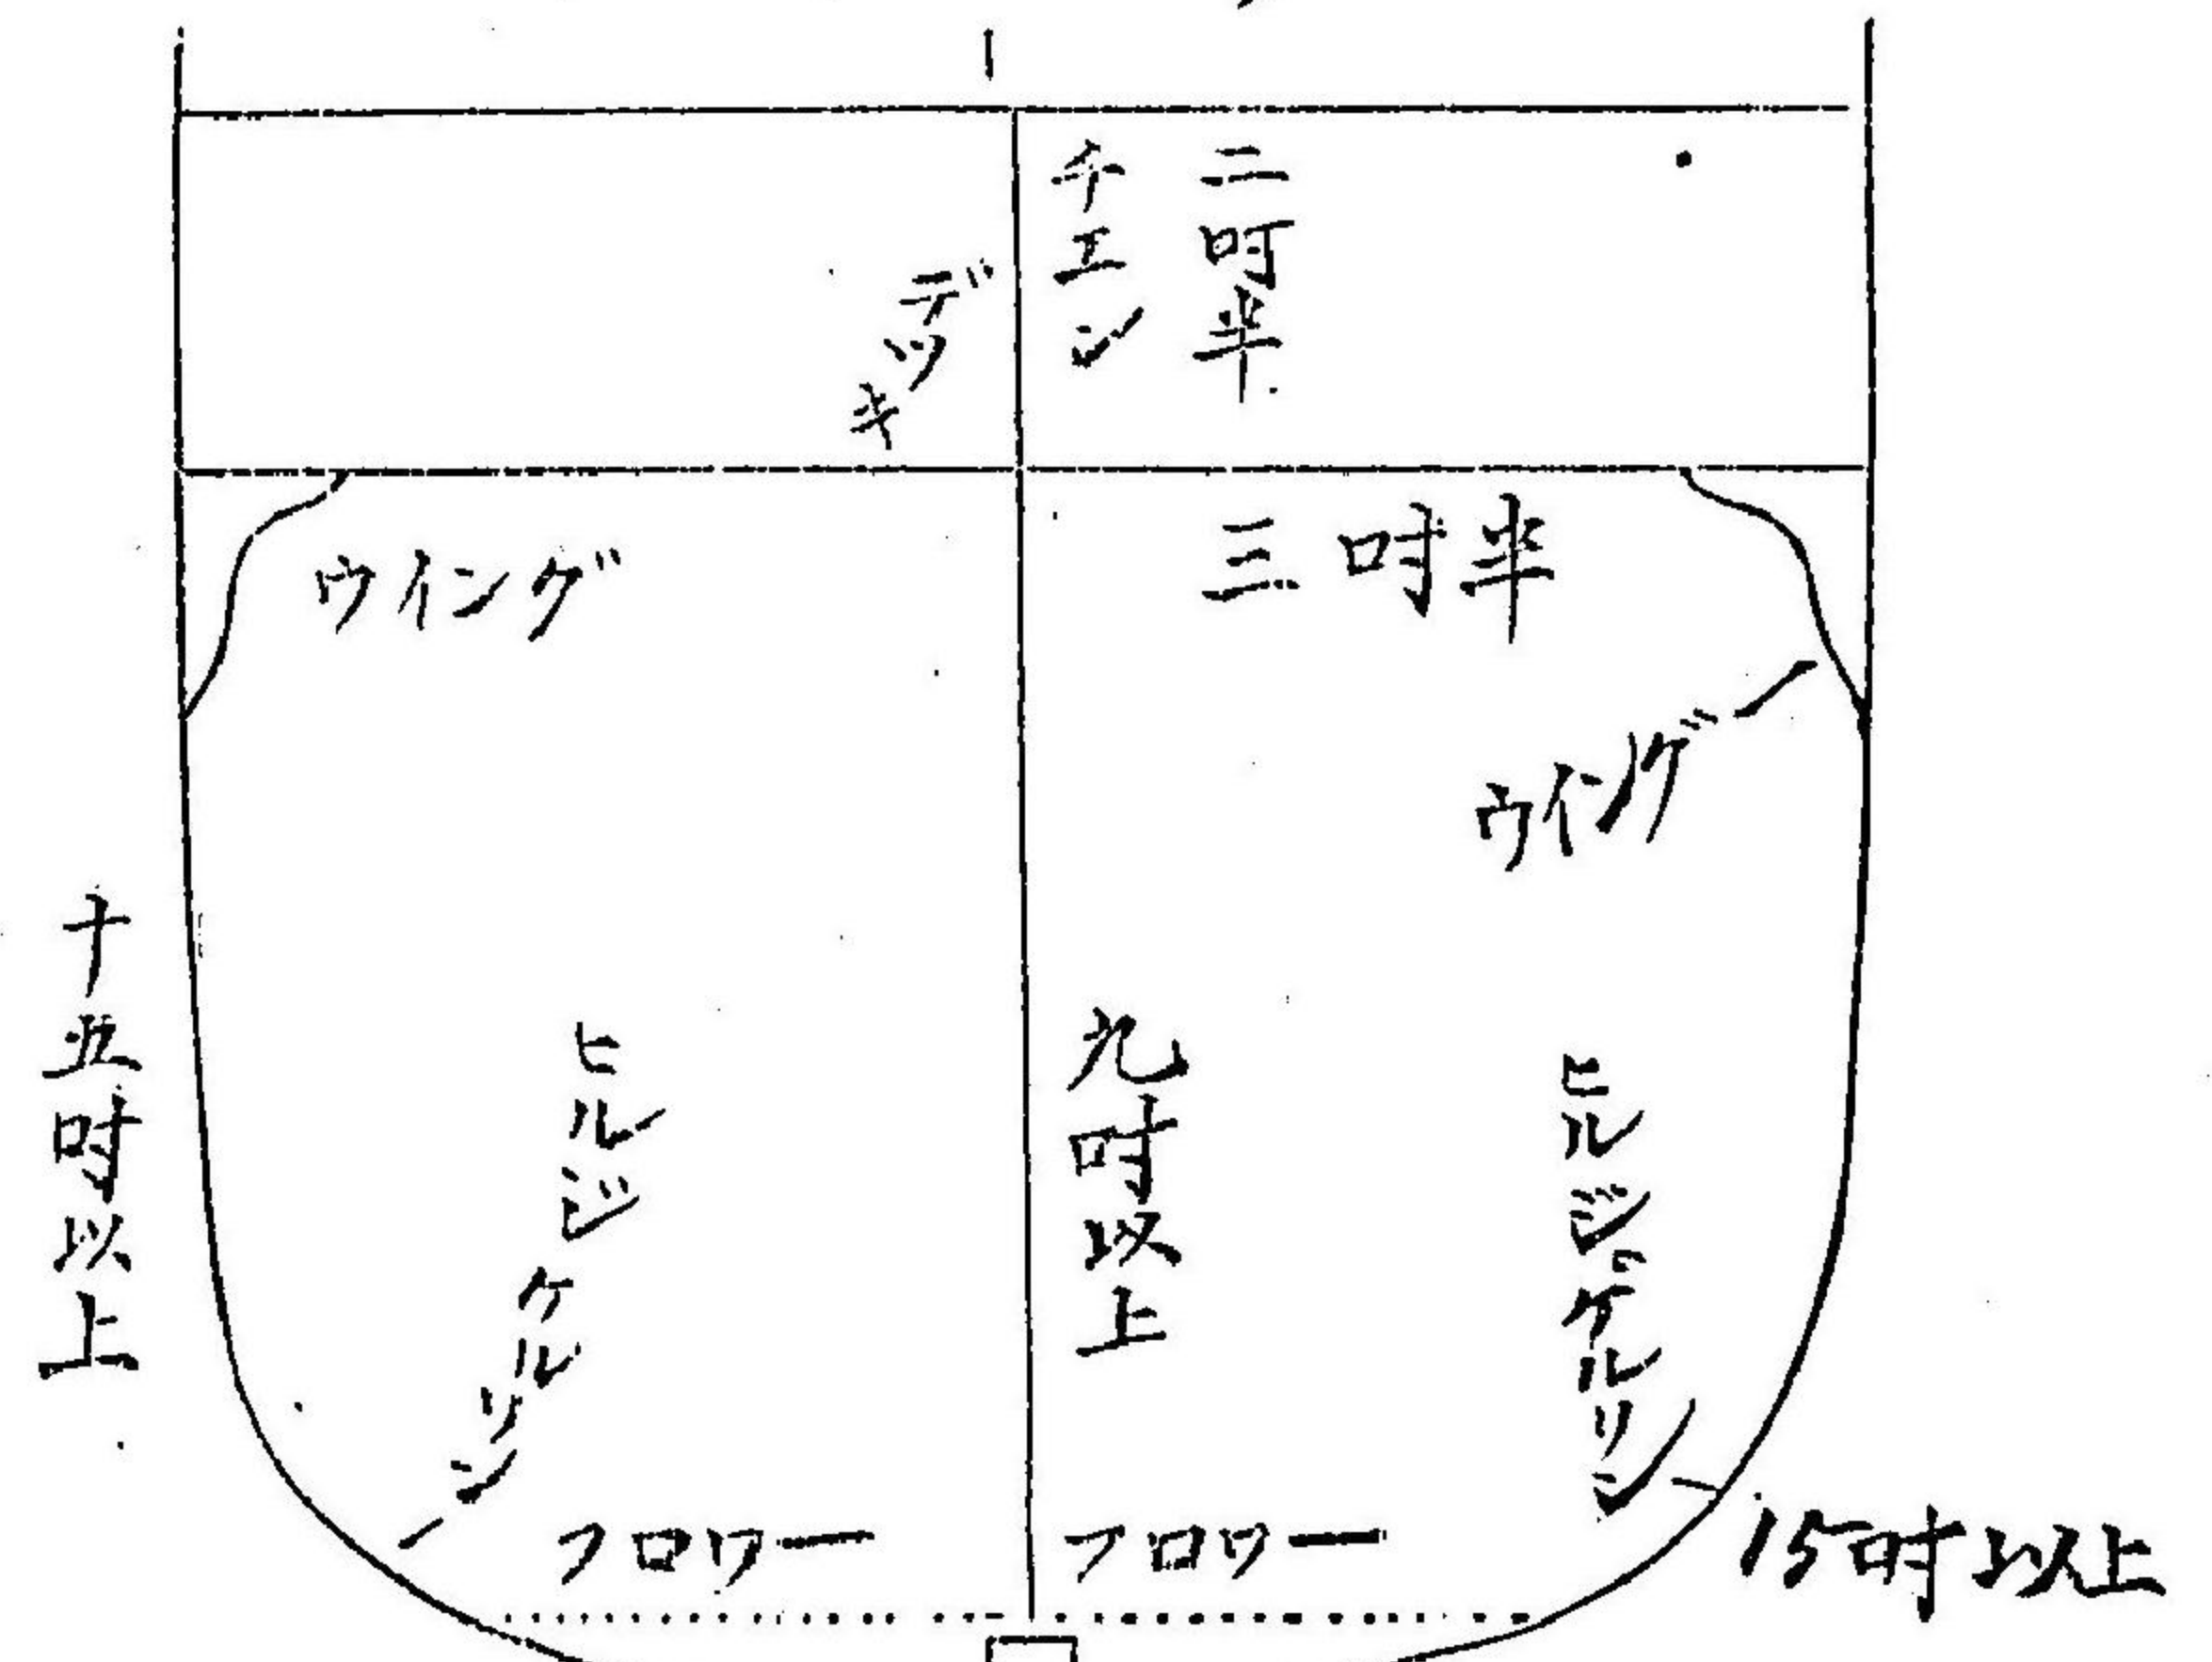 二吋半
チエン
デツキ
ウイング
三吋半
ウイング
十五吋以上
ヒルジケルリン
九吋以上
ヒルジケルリン
フロワー
フロワー
15吋以上